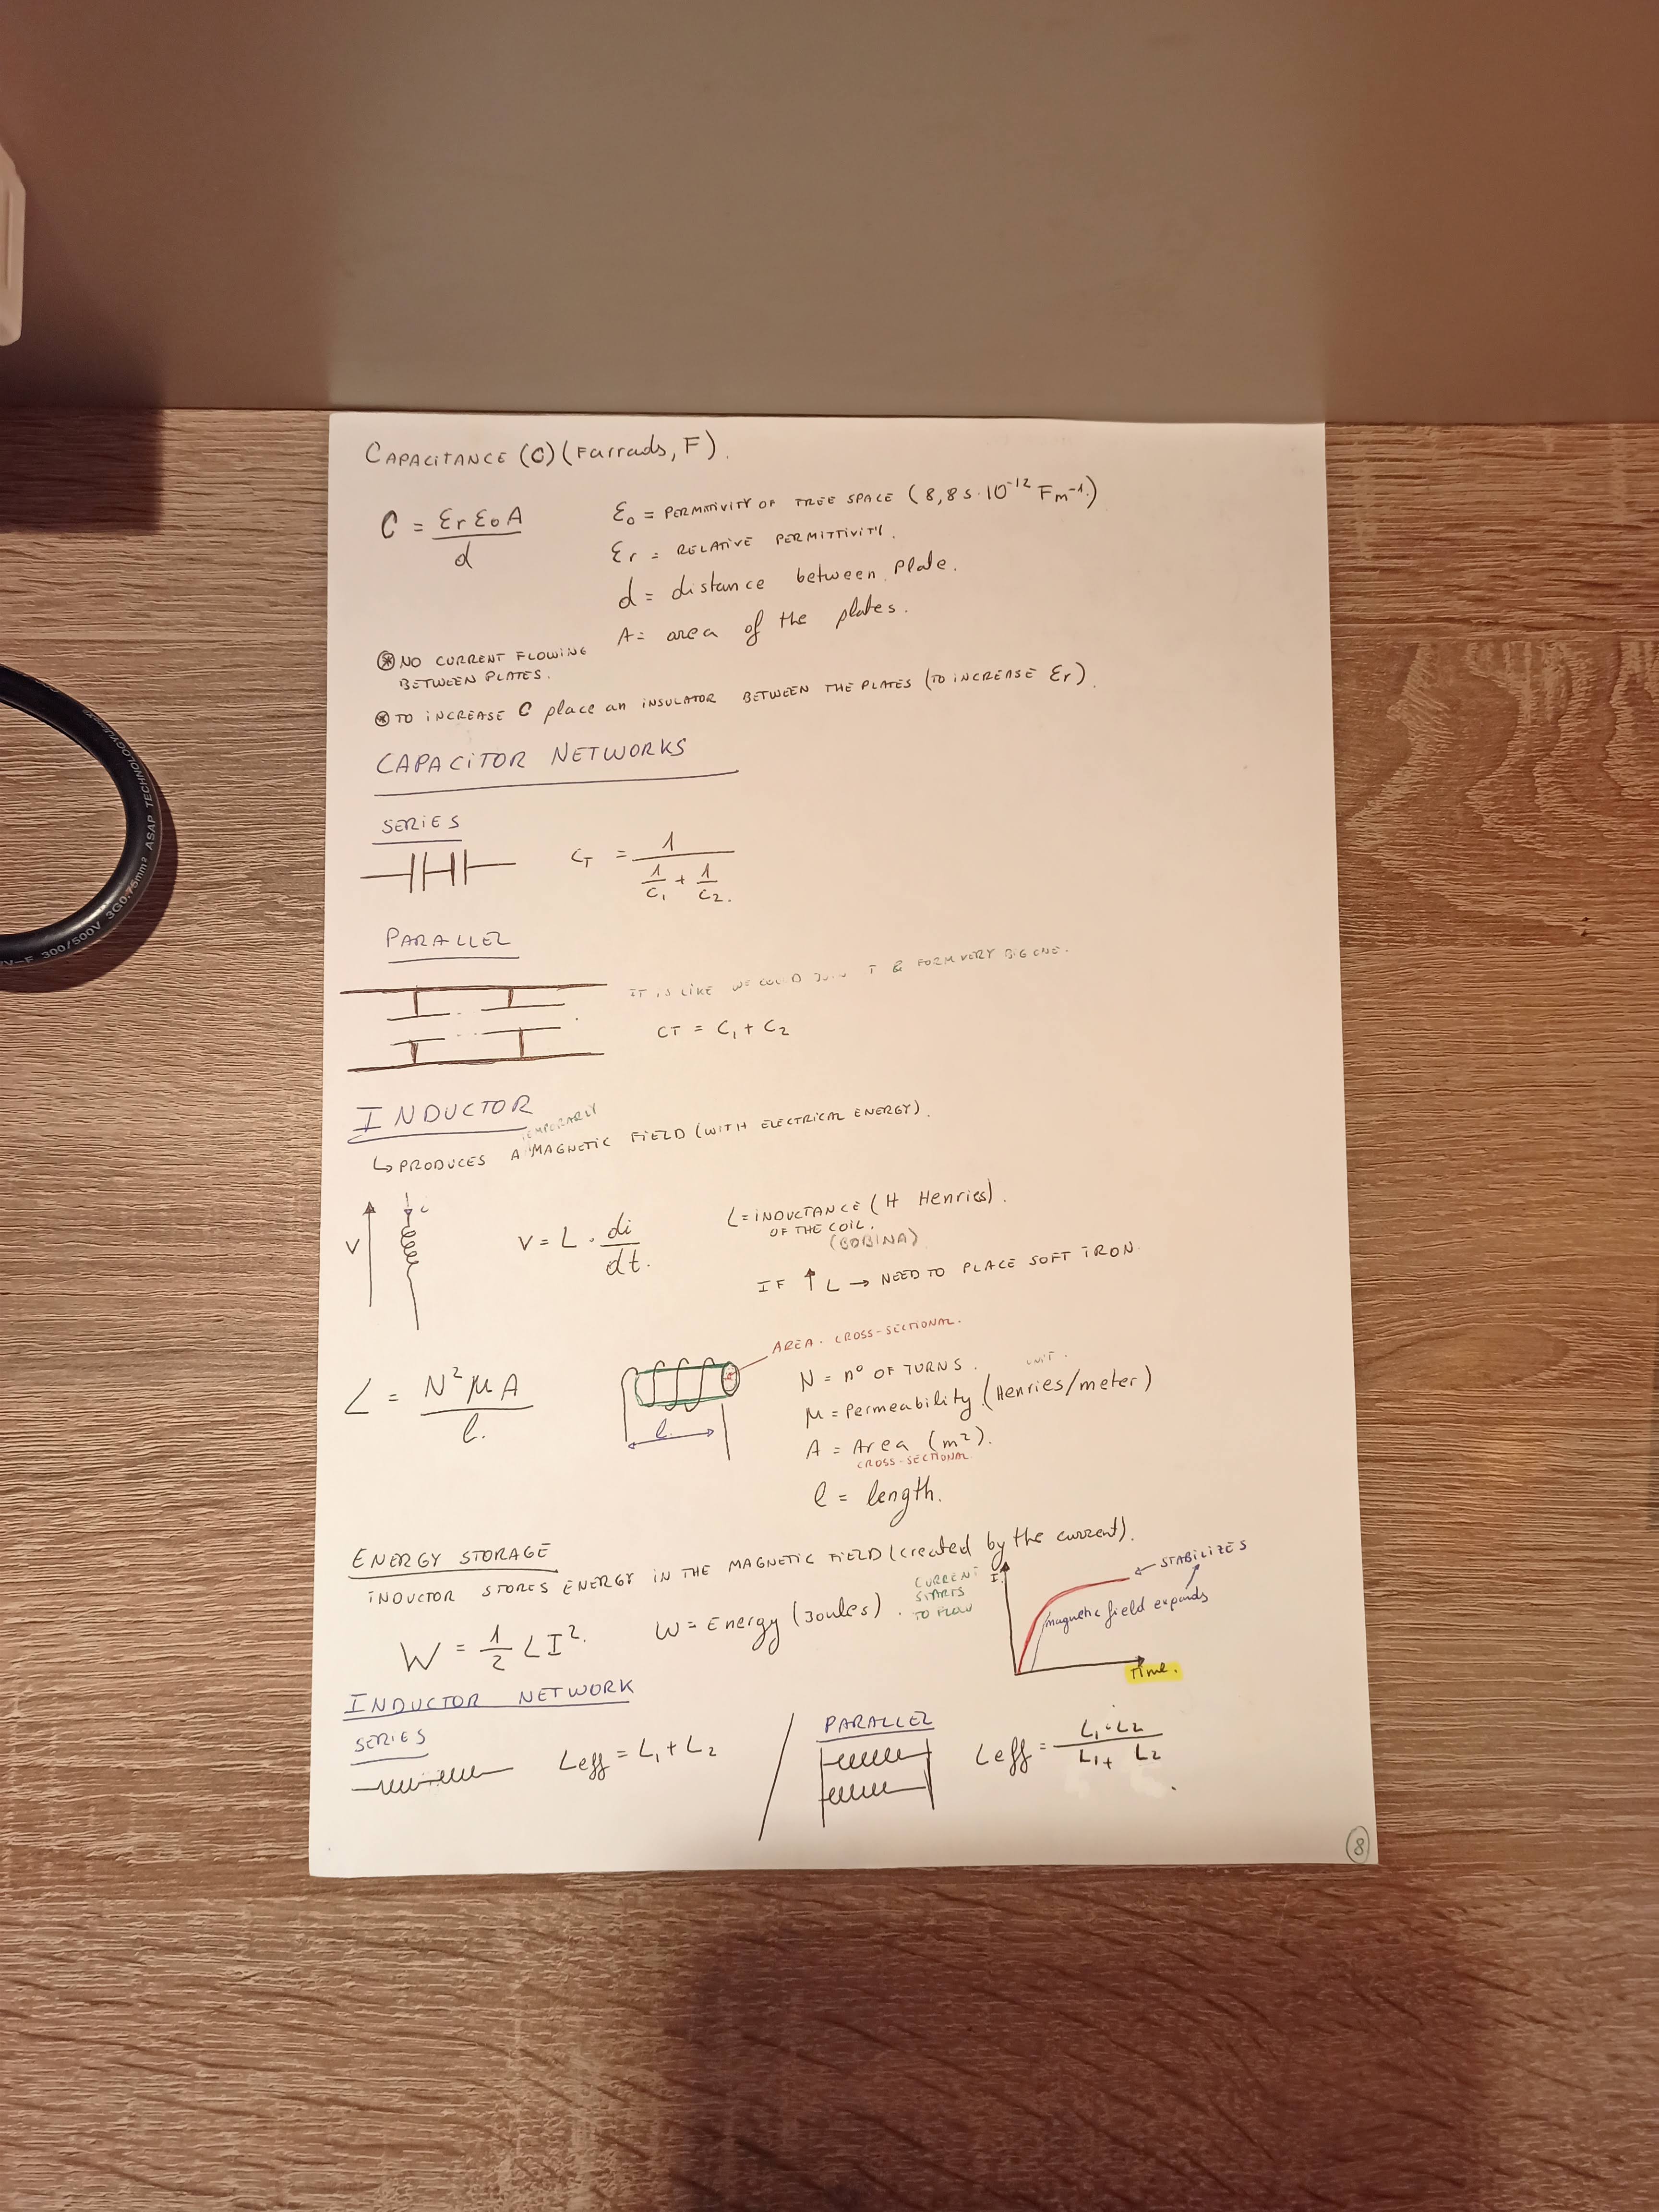 CAPACITANCE (C) (Farrads, F).
C = εr ε0 A / d
ε0 = PERMITIVITY OF FREE SPACE (8,85·10^-12 Fm^-1.)
εr = RELATIVE PERMITTIVITY.
d = distance between plate.
A = area of the plates.
⊛ NO CURRENT FLOWING
BETWEEN PLATES.
⊛ TO INCREASE C place an INSULATOR BETWEEN THE PLATES (TO INCREASE εr).
CAPACITOR NETWORKS
SERIES
CT = 1 / (1/C1 + 1/C2).
PARALLEL
IT IS LIKE WE COULD JOIN & FORM VERY BIG ONE.
CT = C1 + C2
INDUCTOR
TEMPORARLY
↳ PRODUCES A MAGNETIC FIELD (WITH ELECTRICAL ENERGY).
V i
V = L · di/dt.
L = INDUCTANCE (H Henries).
OF THE COIL.
(BOBINA)
IF ↑ L → NEED TO PLACE SOFT IRON.
L = N² μ A / l.
AREA. CROSS-SECTIONAL.
l.
N = nº OF TURNS.
UNIT.
μ = Permeability. (Henries/meter)
A = Area (m²).
CROSS-SECTIONAL
l = length.
ENERGY STORAGE
INDUCTOR STORES ENERGY IN THE MAGNETIC FIELD (created by the current).
W = 1/2 L I².
W = Energy (Joules).
CURRENT
STARTS
TO FLOW
I
← STABILIZES
magnetic field expands
Time.
INDUCTOR NETWORK
SERIES
Leff = L1 + L2
PARALLEL
Leff = L1 · L2 / L1 + L2
8
3G0.75mm² ASAP TECHNOLOGY
V-F 300/500V